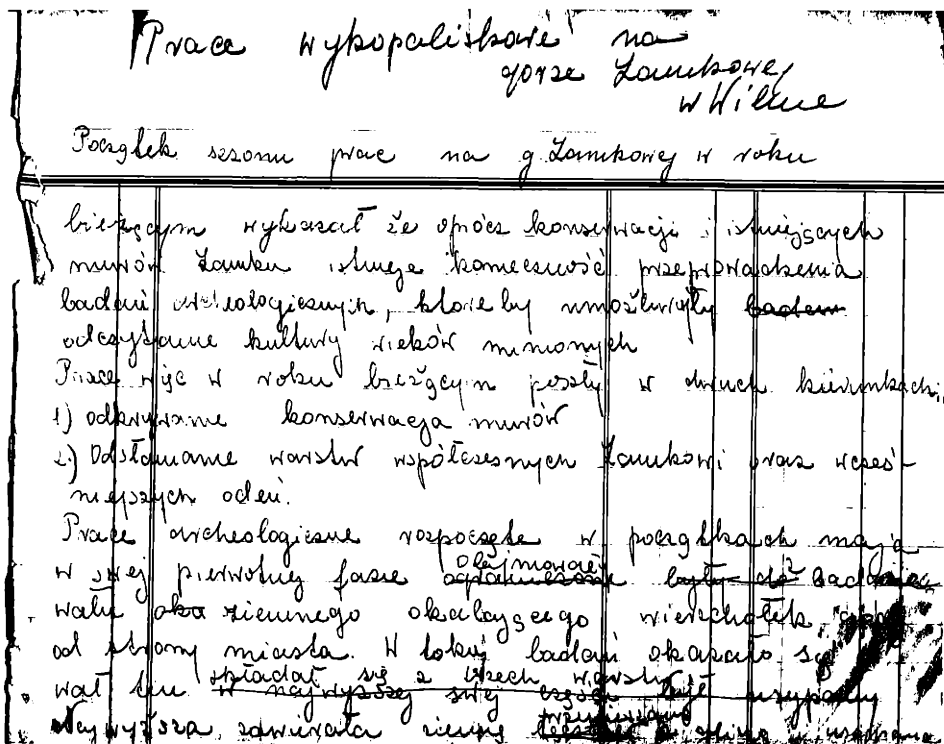 Prace wykopaliskowe na
górze Zamkowej
w Wilnie
Początek sezonu prac na g. Zamkowej w roku
bieżącym wykazał że oprócz konserwacji i istniejących
murów Zamku istnieje konieczność przeprowadzenia
badań archeologicznych, które by umożliwiły badam
odczytanie kultury wieków minionych
Prace więc w roku bieżącym poszły w dwuch kierunkach,
1) odkrywanie konserwacja murów
2) Odsłanianie warstw współczesnych Zamkowi oraz wcześ-
niejszych odeń.
Prace archeologiczne rozpoczęte w początkach maja
w swej pierwotnej fazie obejmowały były do
wału oka ziemnego okalającego wierzchołek góry
od strony miasta. W toku badań okazało się
składał się z trzech warstw
wał ten w najwyższej swej części był usypany
Najwyższa zawierała ziemię